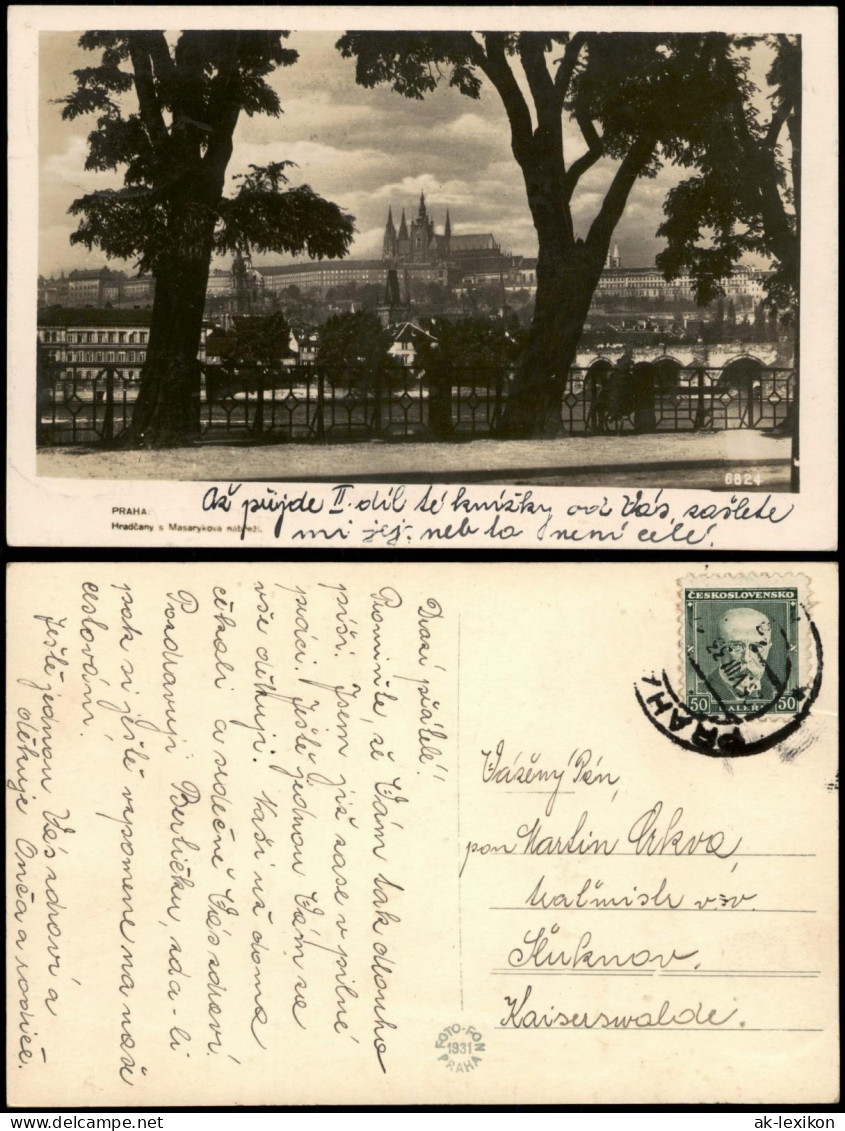 6824
PRAHA:
Hradčany s Masarykova nábřeží.
Až půjde II. díl té knížky od Vás, zašlete
mi jej, neb to není celé.
Drazí přátelé!
Promiňte, že Vám tak dlouho
píši. Jsem již zase v pilné
práci. Ještě jednou Vám za
vše děkuji. Naši už doma
čekali a srdečně Vás zdraví.
Pozdravuji Bertičku, zda-li
pak si ještě vzpomene na naše
cestování.
Ještě jednou Vás zdraví a
děkuje Onča a rodiče.
ČESKOSLOVENSKO
50 HALEŘŮ 50
PRAHA
VII. 33
Vážený Pán,
pan Martin Crkva,
v. v.
Šluknov.
Kaiserswalde.
FOTO-FON
1931
PRAHA
ak-lexikon